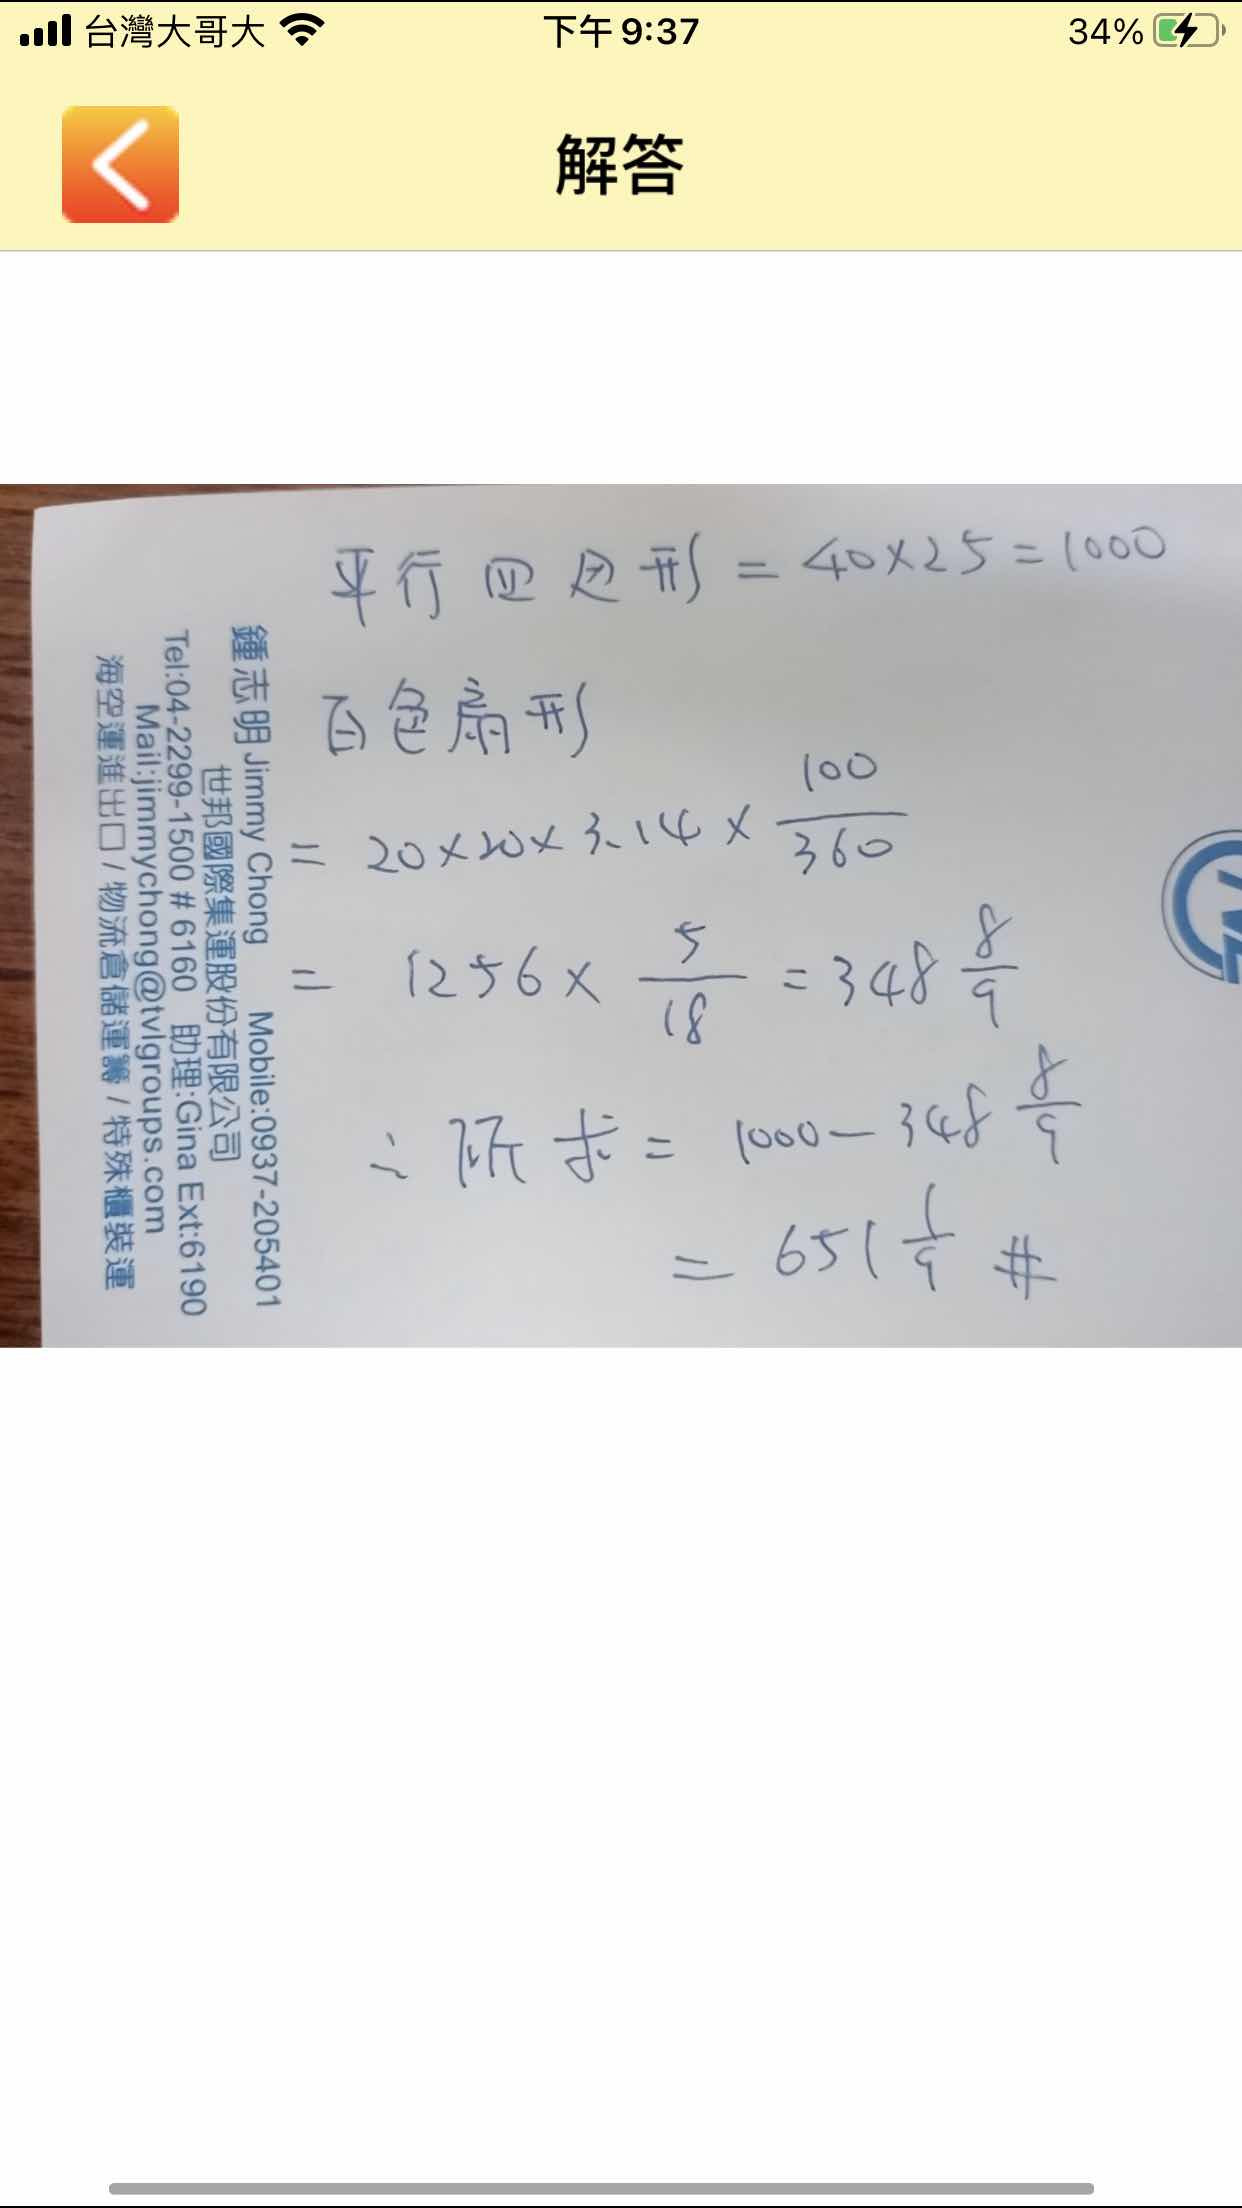 台灣大哥大 下午 9:37 34%
解答
平行四边形 = 40×25 = 1000
白色扇形
= 20×20×3.14× 100/360
= 1256× 5/18 = 348 8/9
∴ 所求 = 1000 - 348 8/9
= 651 1/9 #
鍾志明 Jimmy Chong Mobile:0937-205401
世邦國際集運股份有限公司
Tel:04-2299-1500 # 6160 助理:Gina Ext:6190
Mail:jimmychong@tvlgroups.com
海空運進出口 / 物流倉儲運籌 / 特殊櫃裝運